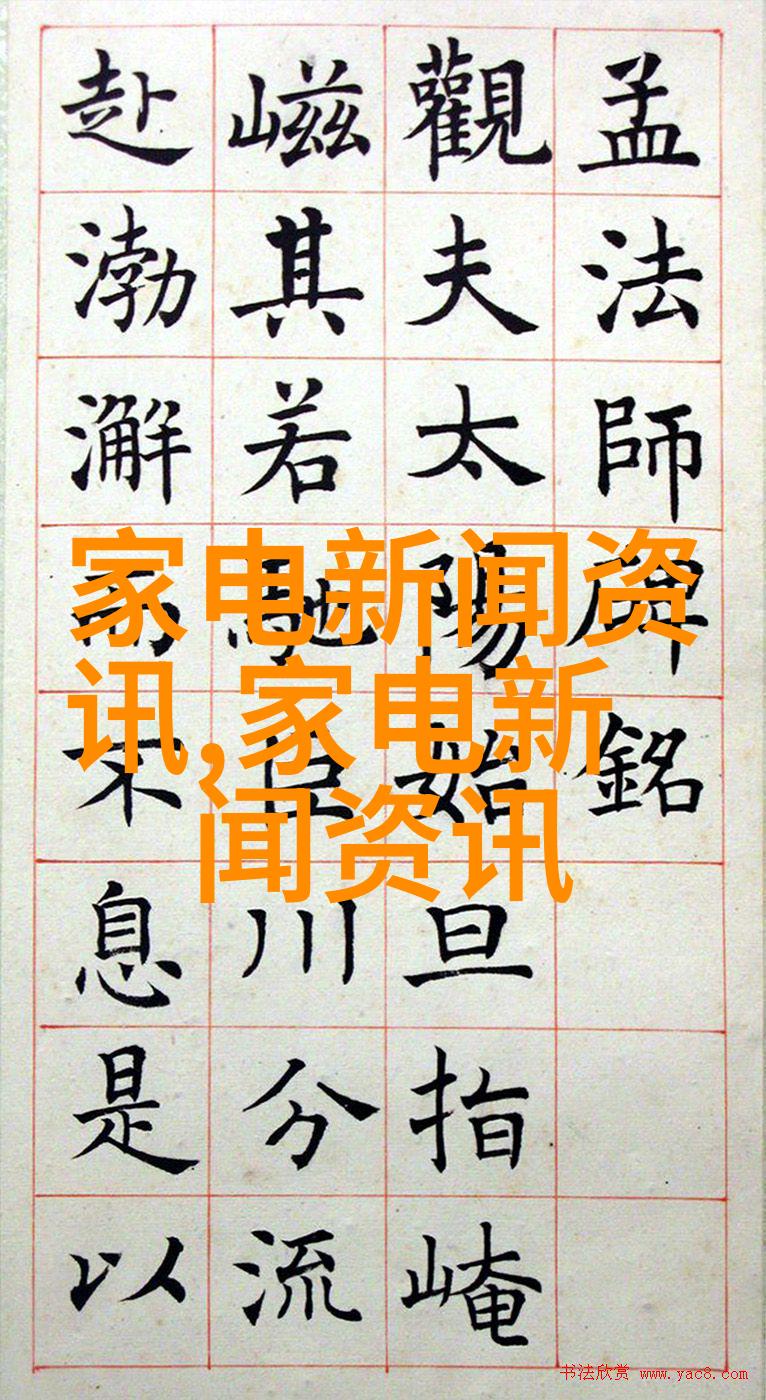 孟法師碑銘
觀夫太陽始旦指崦
嵫其若馳巨川分流
赴渤澥而不息是以
家电新闻资
讯,家电新
闻资讯
书法欣赏 www.yac8.com